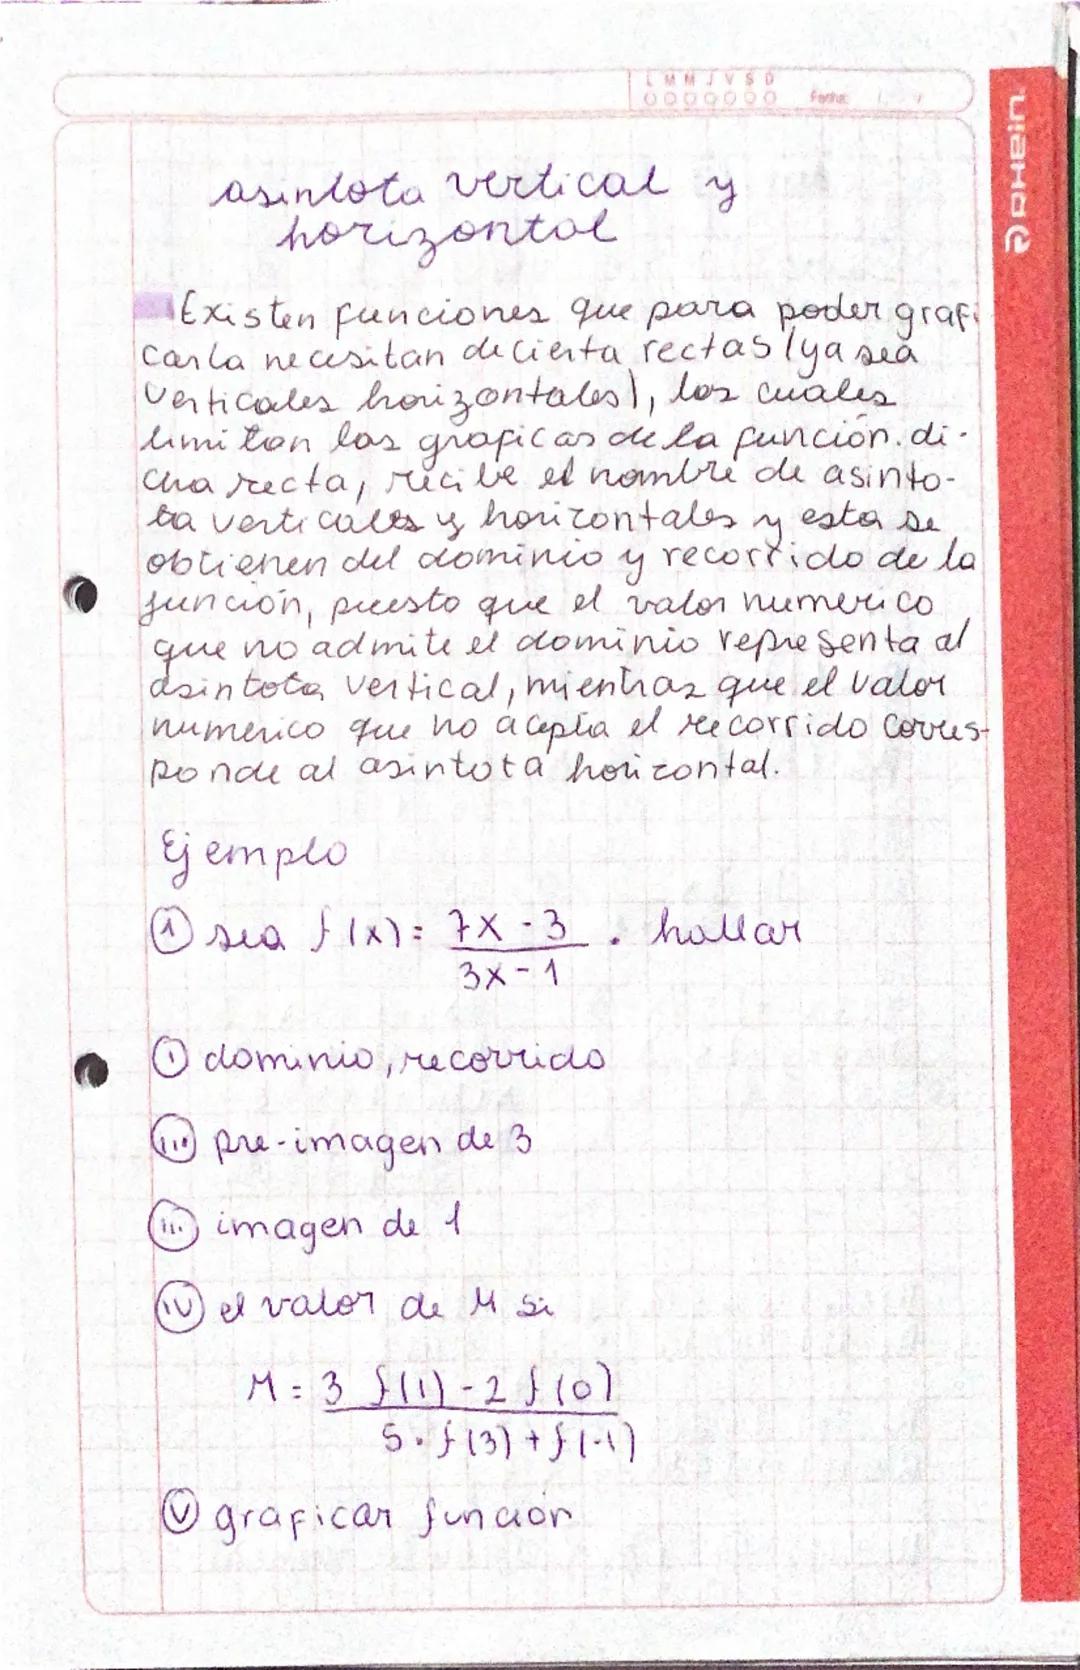 L M M J V S D
Fecha:
RHein
asintota vertical y
horizontal
Existen funciones que para poder grafi
carla necesitan de cierta rectas (ya sea
verticales horizontales), las cuales
limitan las graficas de la función. di-
cha recta, recibe el nombre de asinto-
ta verticales y horizontales y esta se
obtienen del dominio y recorrido de la
función, puesto que el valor numerico
que no admite el dominio representa al
asintota vertical, mientras que el valor
numerico que no acepta el recorrido corres-
ponde al asintota horizontal.
Ejemplo
① sea f(x) = 7x - 3 . hallar
3x - 1
Ⓘ dominio, recorrido
(iii) pre-imagen de 3
(iii) imagen de 1
(IV) el valor de M si
M = 3 f(1) - 2 f(0)
5 · f(3) + f(-1)
Ⓥ graficar función